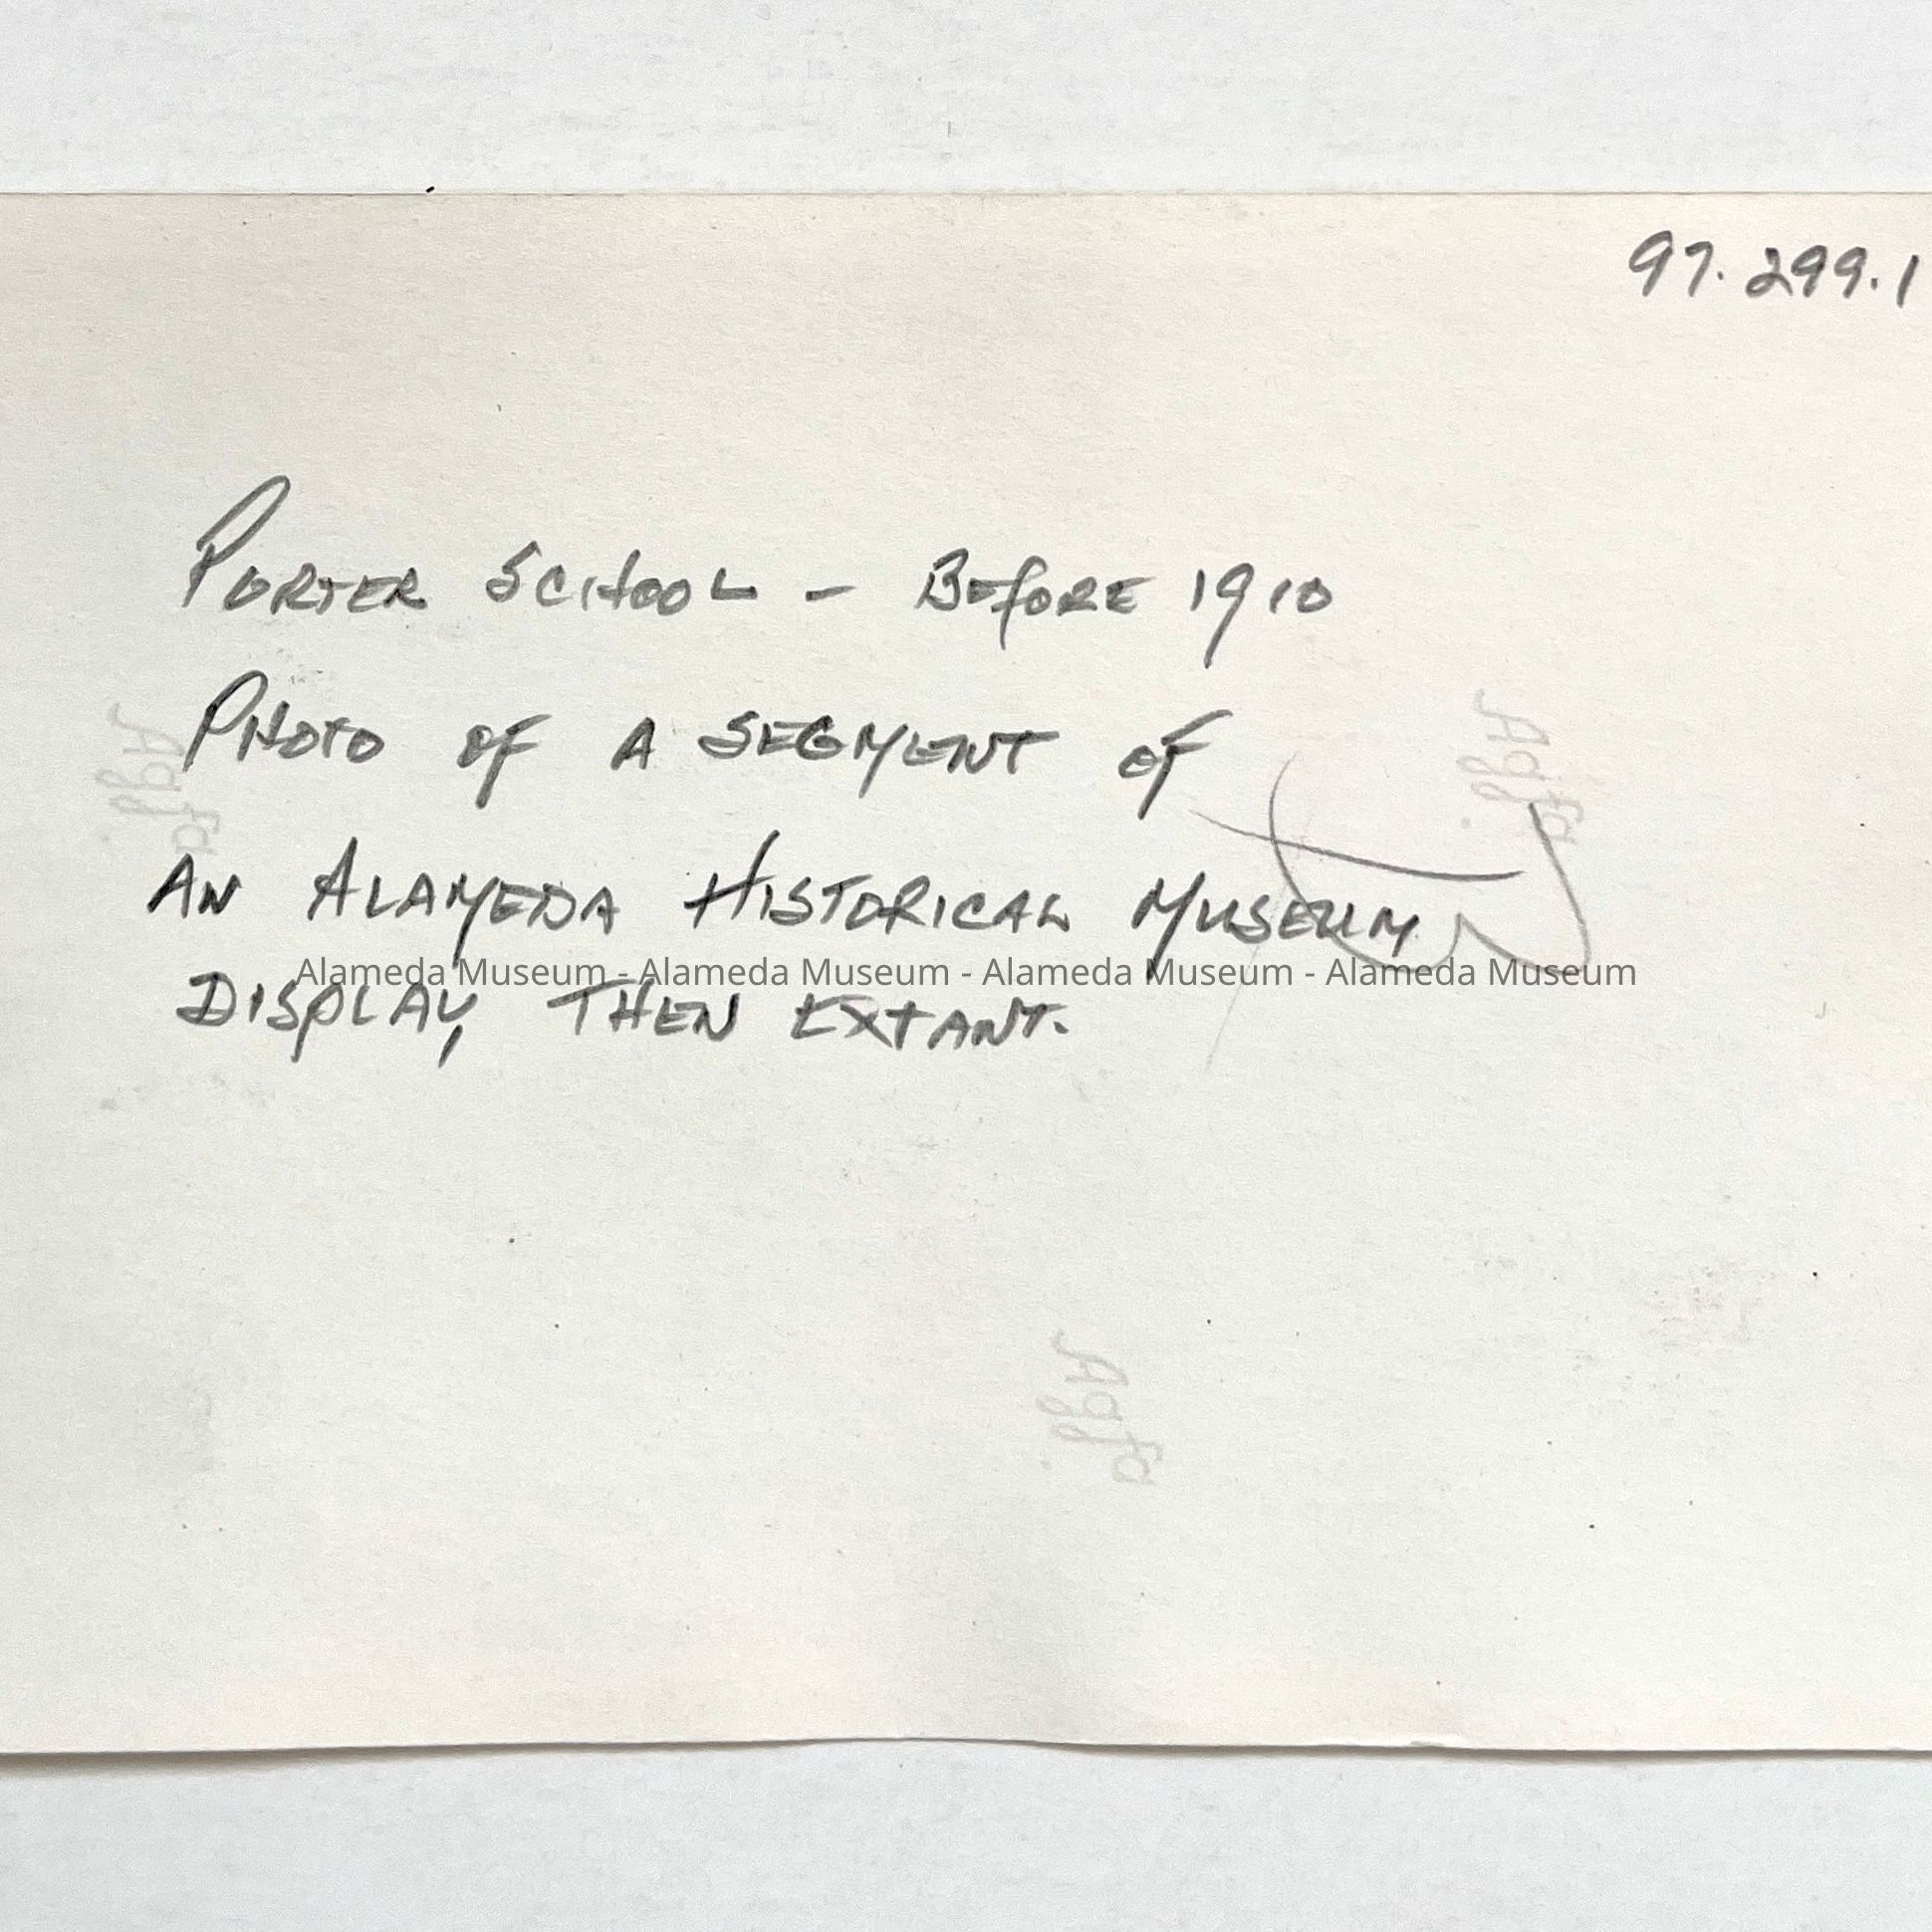 97.299.1
PORTER SCHOOL - BEFORE 1910
PHOTO OF A SEGMENT OF
AN ALAMEDA HISTORICAL MUSEUM
Alameda Museum - Alameda Museum - Alameda Museum - Alameda Museum
DISPLAY, THEN EXTANT.
Agfa
Agfa
Agfa